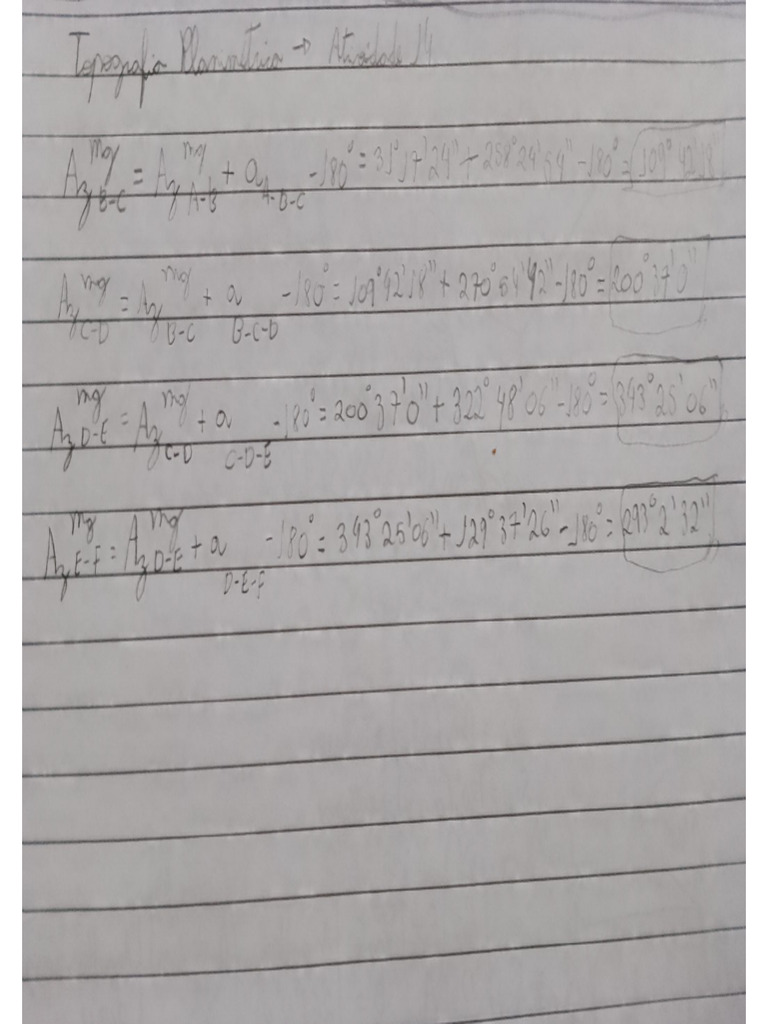 Topografia Planimétrica → Atividade 14
Az mg B-C = Az mg A-B + a A-B-C - 180° = 31°17'24" + 258°24'54" - 180° = 109°42'18"
Az mg C-D = Az mg B-C + a B-C-D - 180° = 109°42'18" + 270°54'42" - 180° = 200°37'0"
Az mg D-E = Az mg C-D + a C-D-E - 180° = 200°37'0" + 322°48'06" - 180° = 343°25'06"
Az mg E-F = Az mg D-E + a D-E-F - 180° = 343°25'06" + 129°37'26" - 180° = 293°2'32"